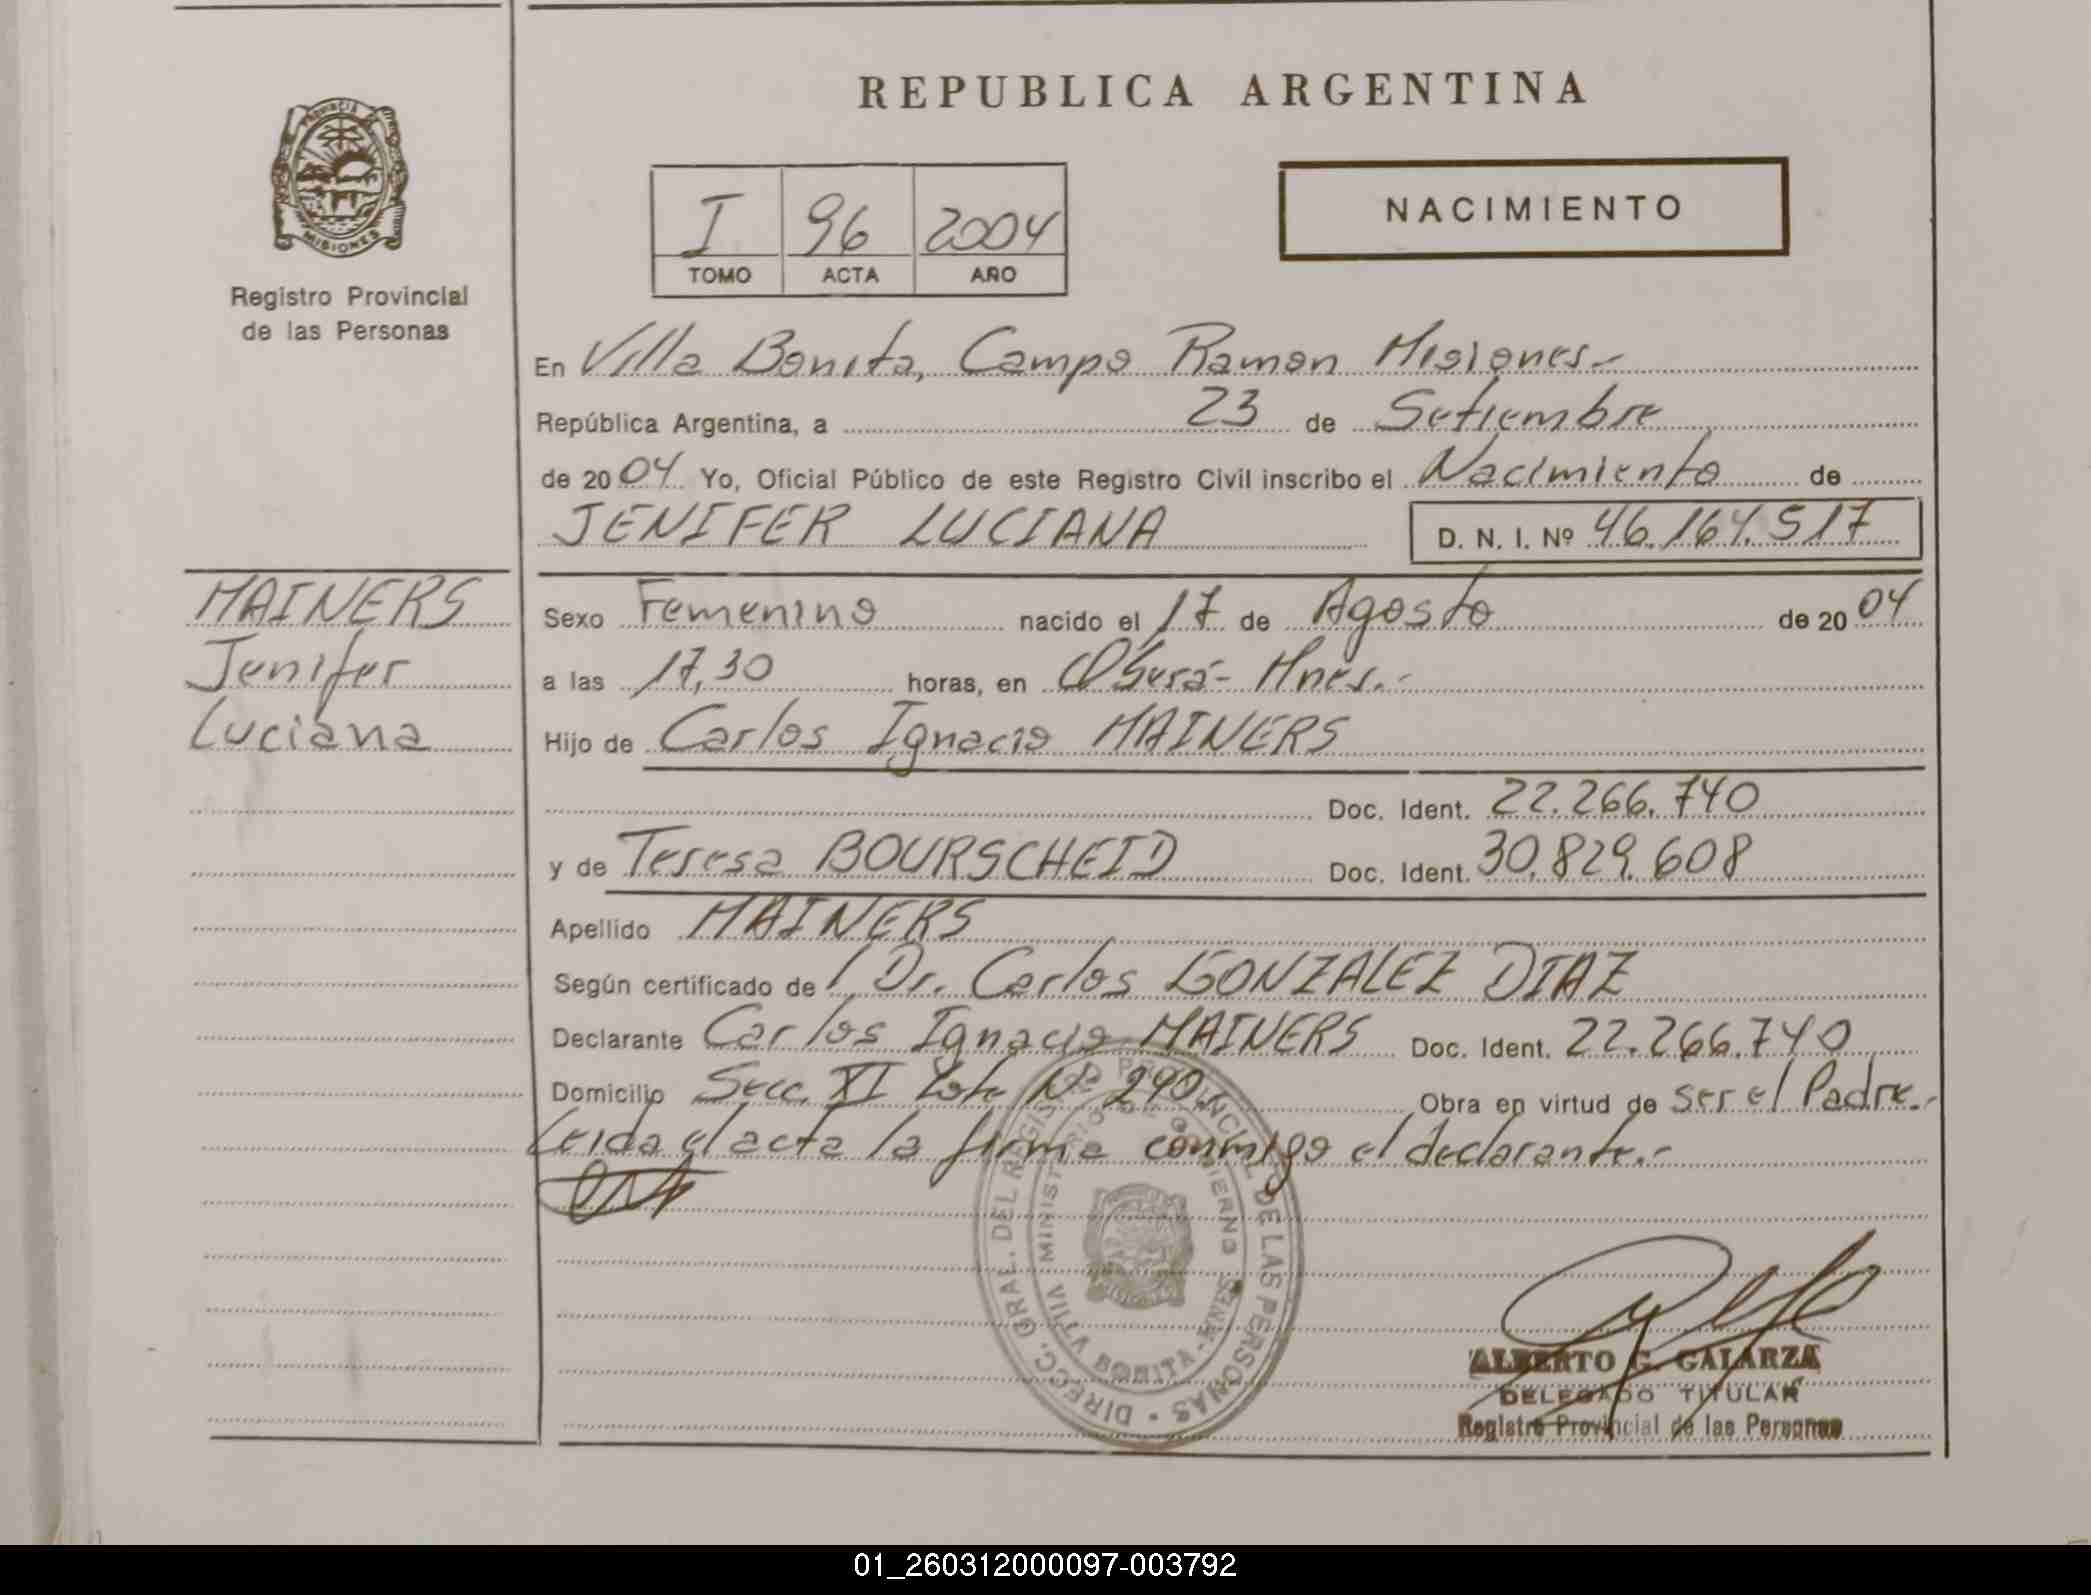 REPUBLICA ARGENTINA
PROVINCIA
MISIONES
Registro Provincial
de las Personas
I 96 2004
TOMO ACTA AÑO
NACIMIENTO
En Villa Bonita, Campo Ramon Misiones.-
República Argentina, a 23 de Setiembre
de 2004 Yo, Oficial Público de este Registro Civil inscribo el Nacimiento de
JENIFER LUCIANA D. N. I. Nº 46.164.517
MAINERS
Jenifer
Luciana
Sexo Femenino nacido el 17 de Agosto de 2004
a las 17,30 horas, en Oberá- Mnes.-
Hijo de Carlos Ignacio MAINERS
Doc. Ident. 22.266.740
y de Teresa BOURSCHEID Doc. Ident. 30.829.608
Apellido MAINERS
Según certificado de Dr. Carlos GONZALEZ DIAZ
Declarante Carlos Ignacio MAINERS Doc. Ident. 22.266.740
Domicilio Secc. XI Lote Nº 290 Obra en virtud de ser el Padre.-
Leida el acta la firma conmigo el declarante.-
DIRECC. GRAL. DEL REGISTRO PROVINCIAL DE LAS PERSONAS
MINISTERIO DE GOBIERNO
VILLA BONITA - MNES
ALBERTO G. GALARZA
DELEGADO TITULAR
Registro Provincial de las Personas
01_260312000097-003792